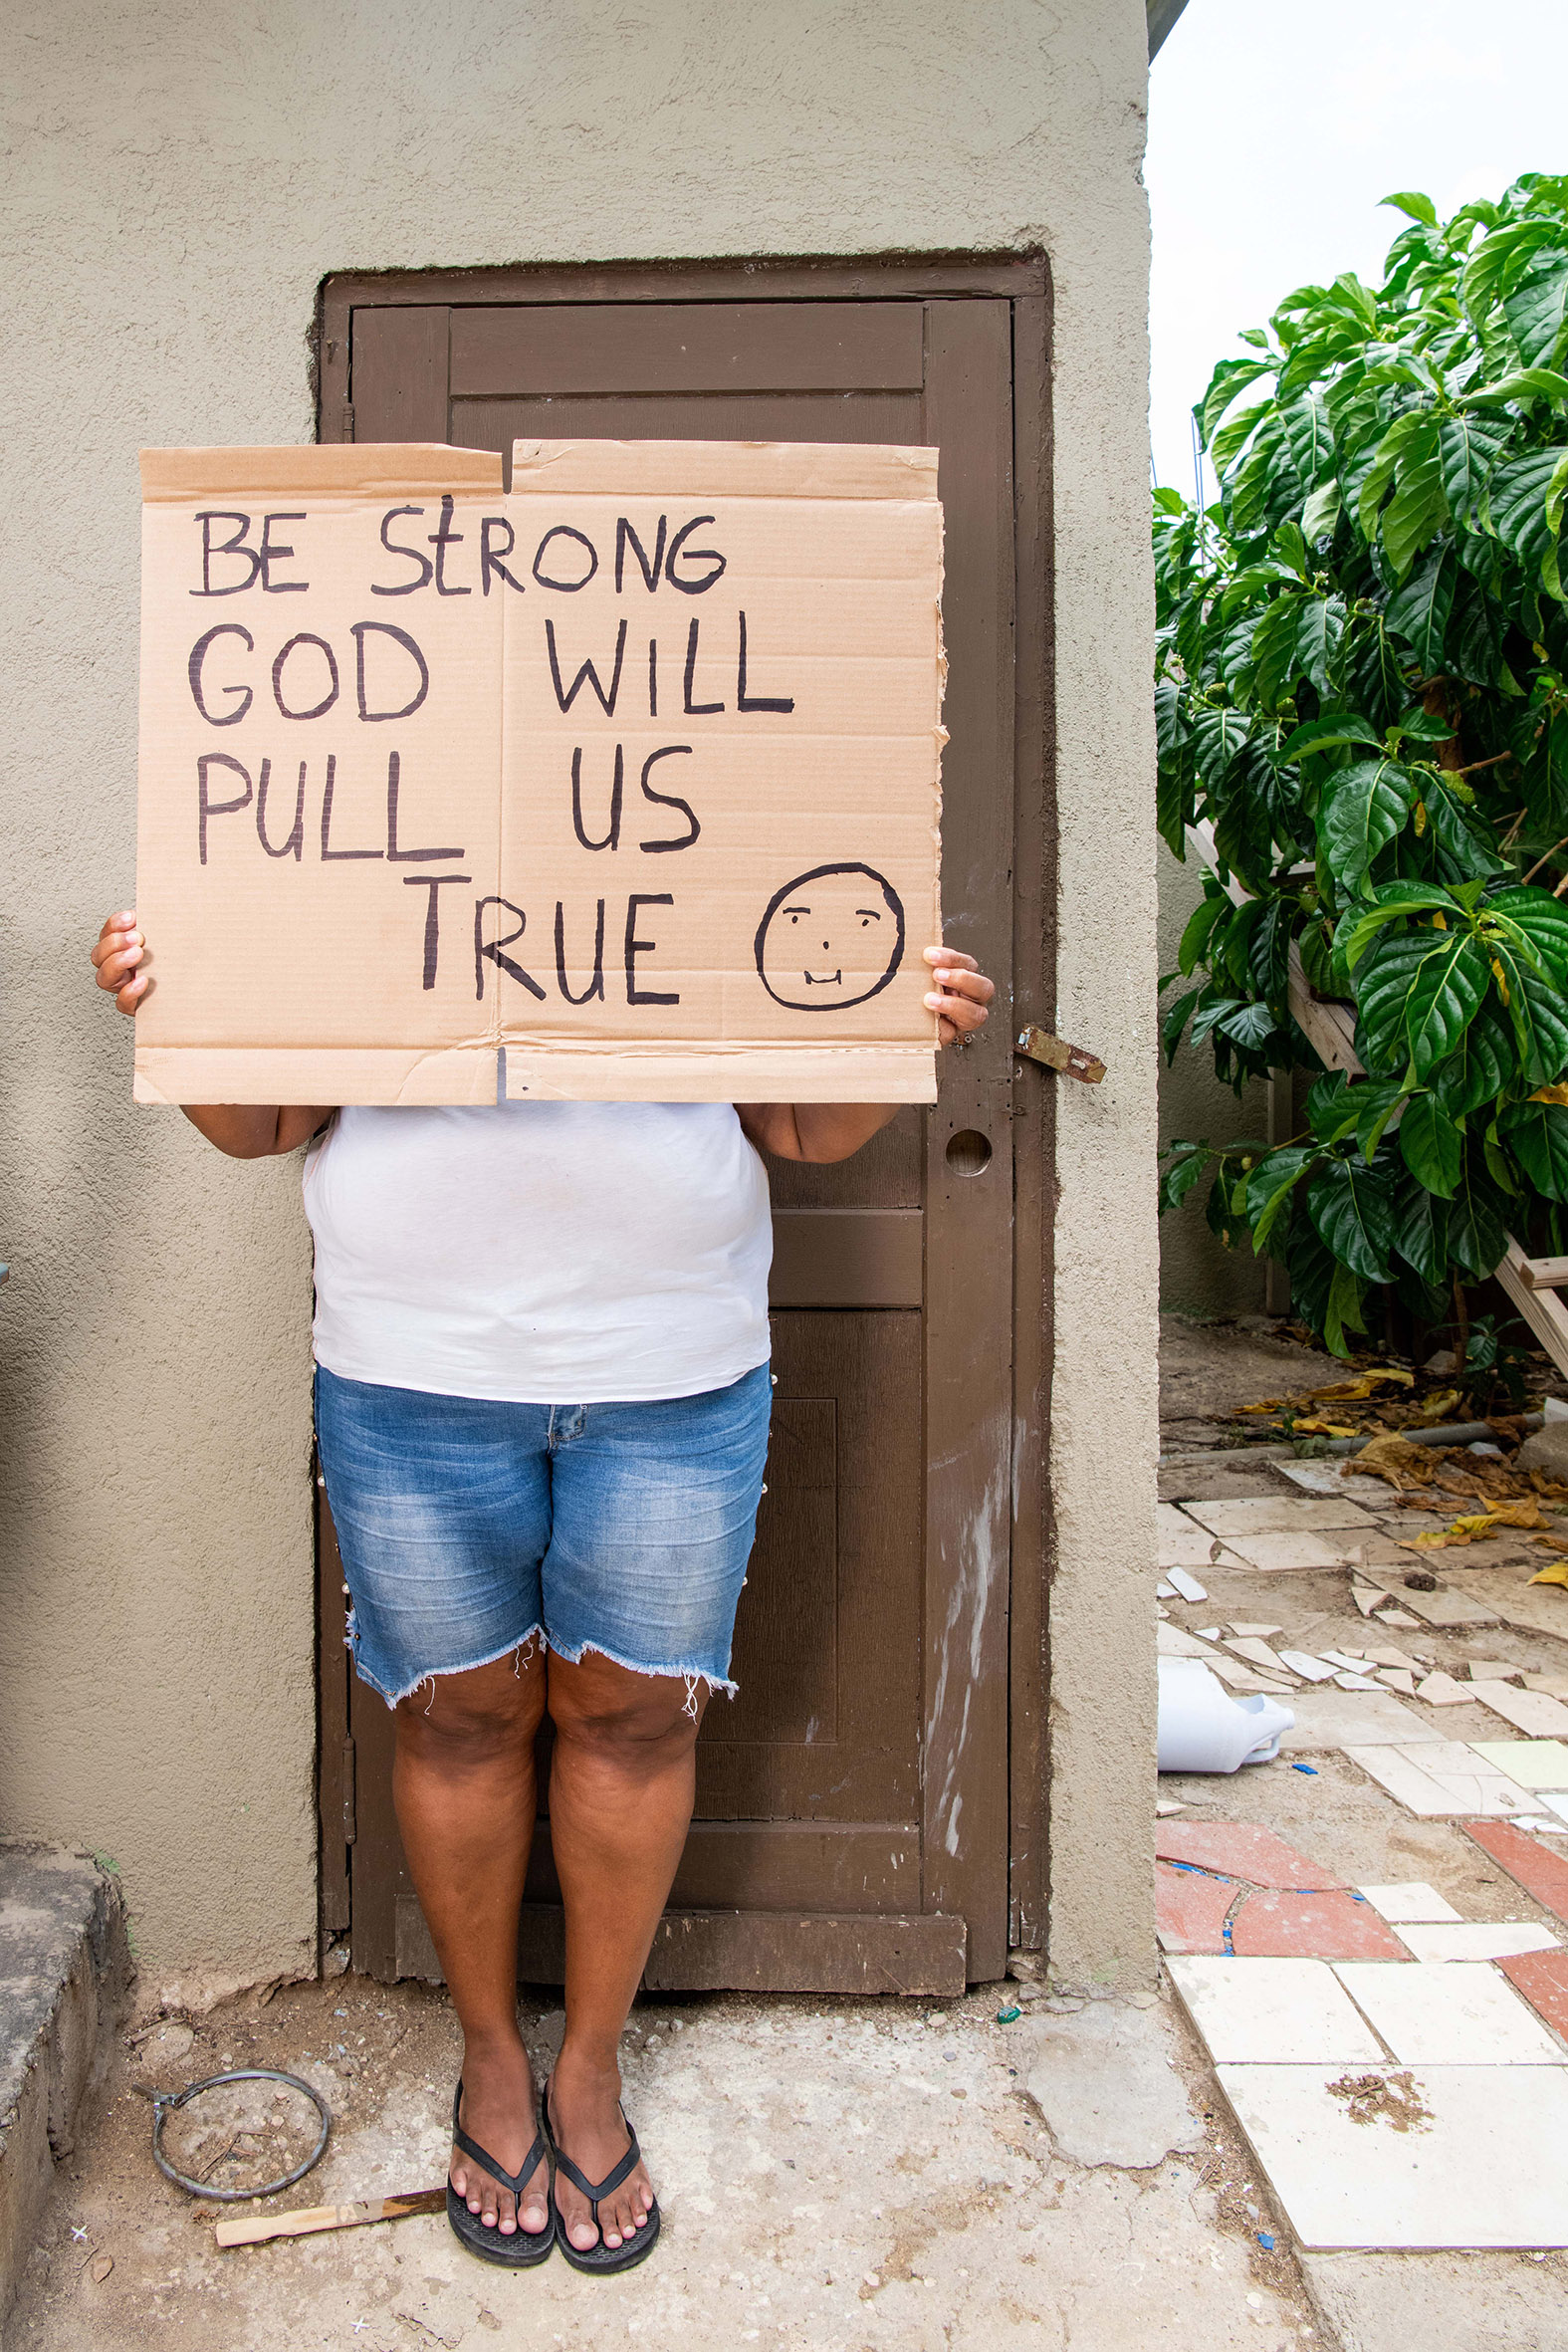 BE StRONG
GOD WiLL
PULL US
TRUE